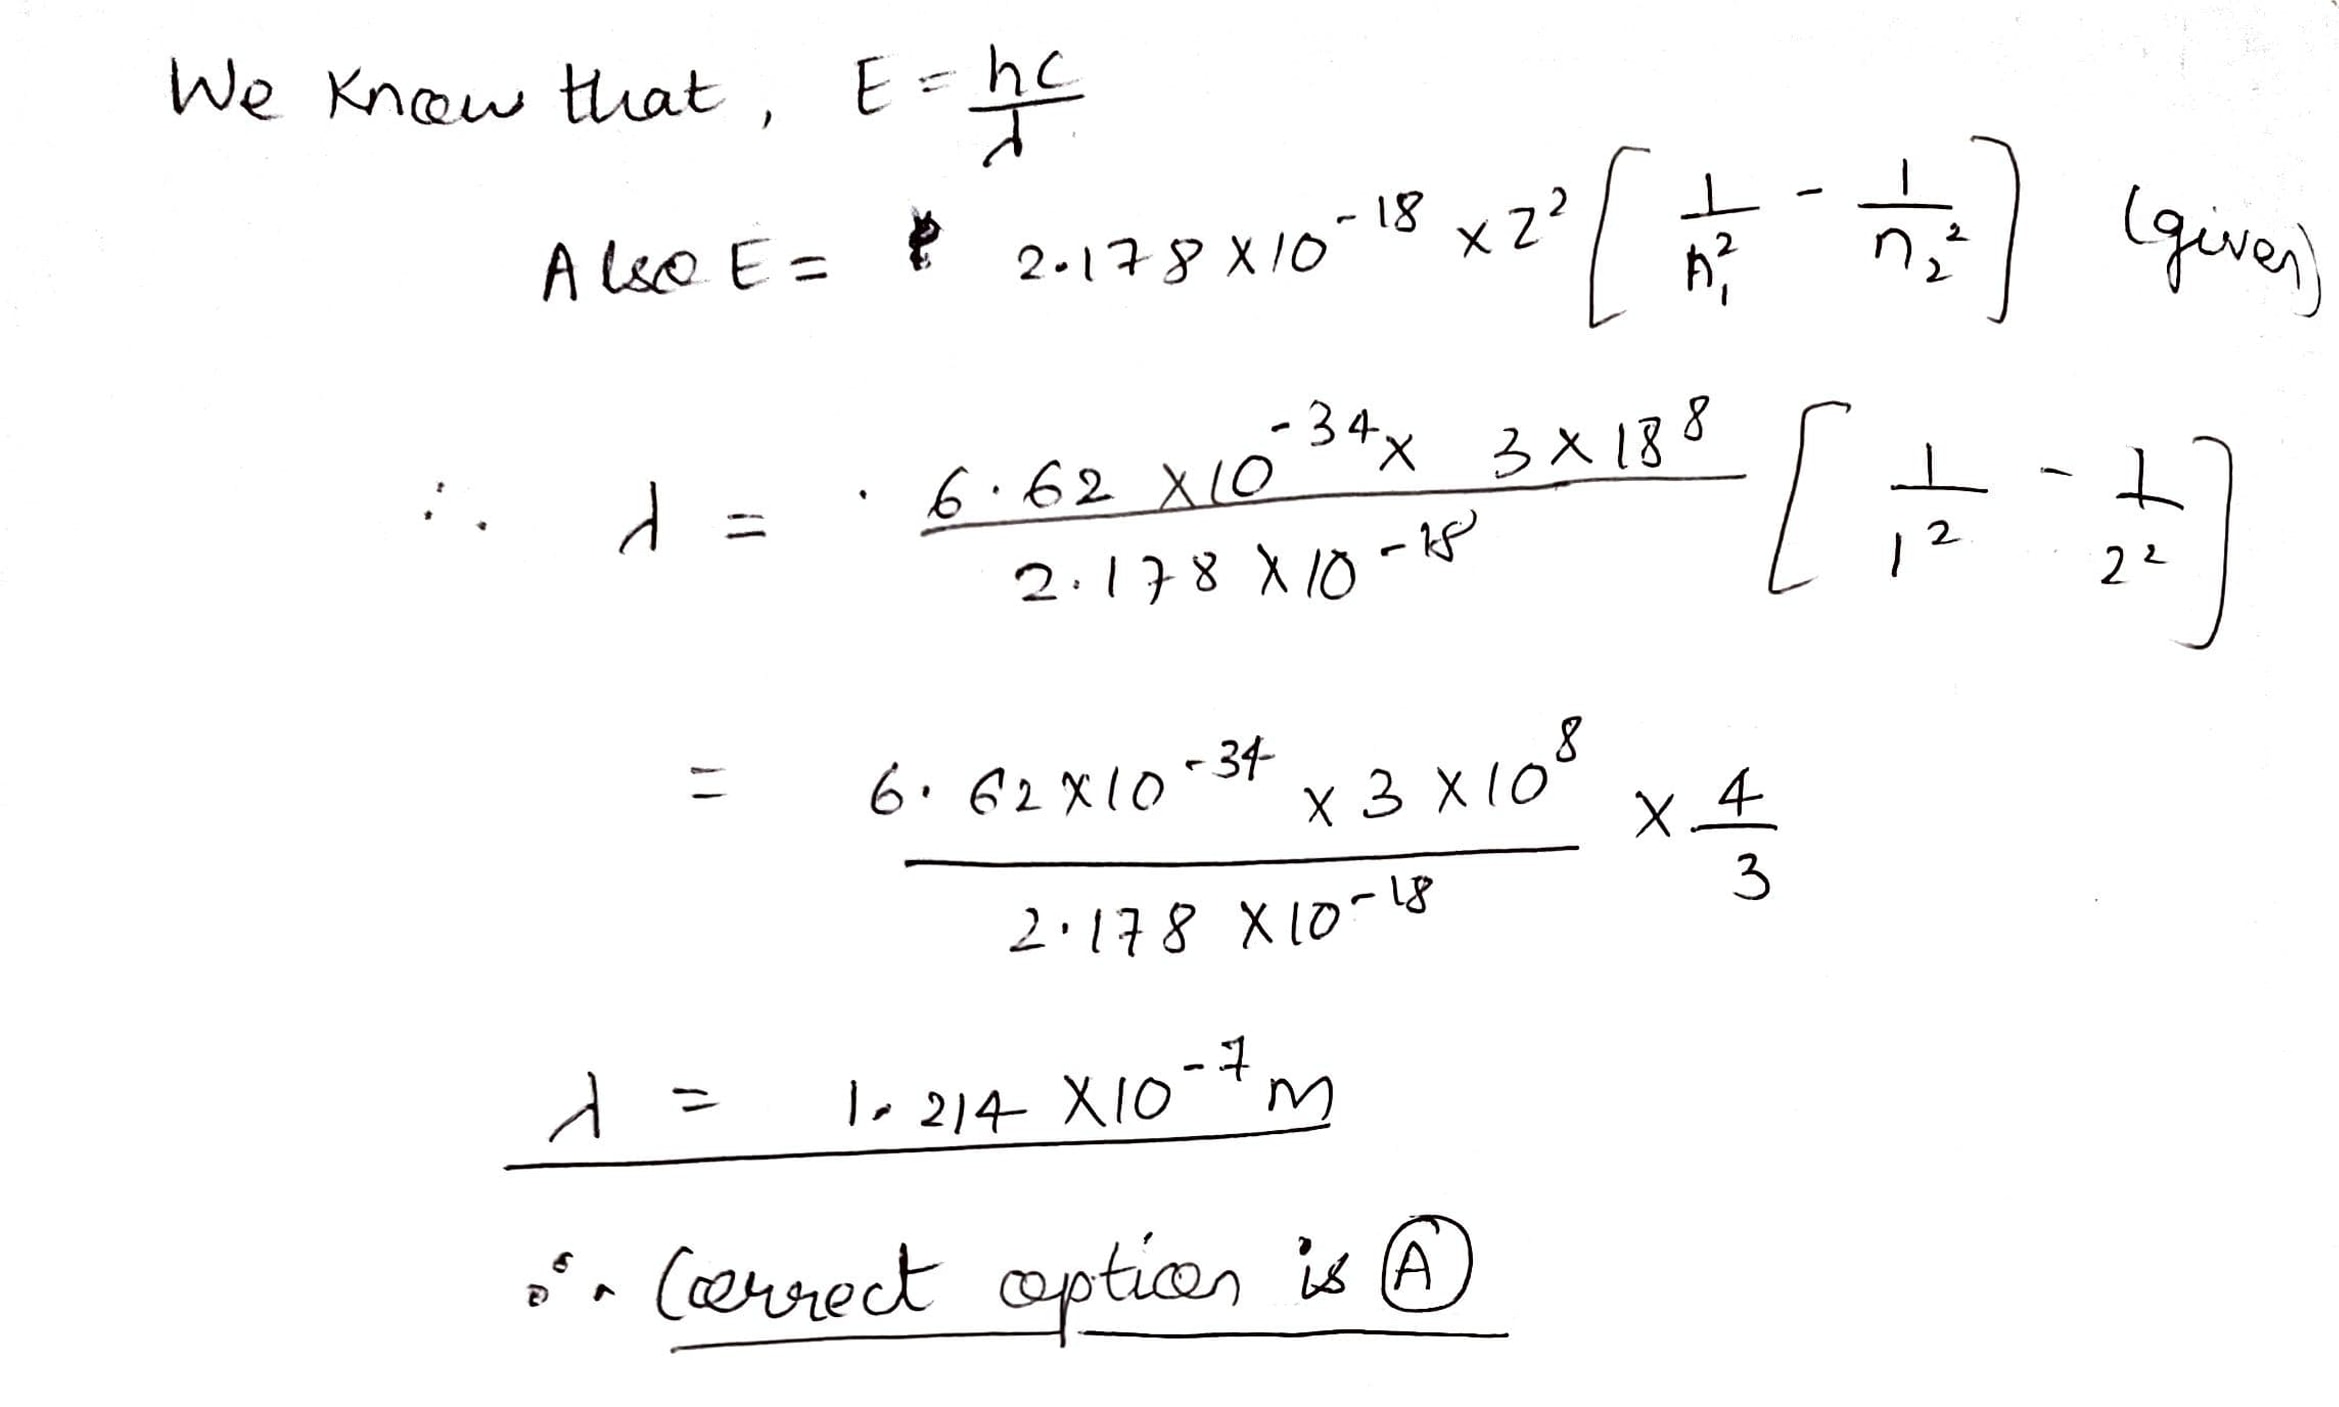 We Know that, E = hc/λ
Also E = 2.178 X 10^-18 x Z^2 [ 1/n₁^2 - 1/n₂^2 ] (given)
∴ λ = 6.62 X 10^-34 x 3 x 10^8 / 2.178 X 10^-18 [ 1/1^2 - 1/2^2 ]
= 6.62 X 10^-34 x 3 X 10^8 / 2.178 X 10^-18 x 4/3
λ = 1.214 X 10^-7 m
∴ Correct option is Ⓐ